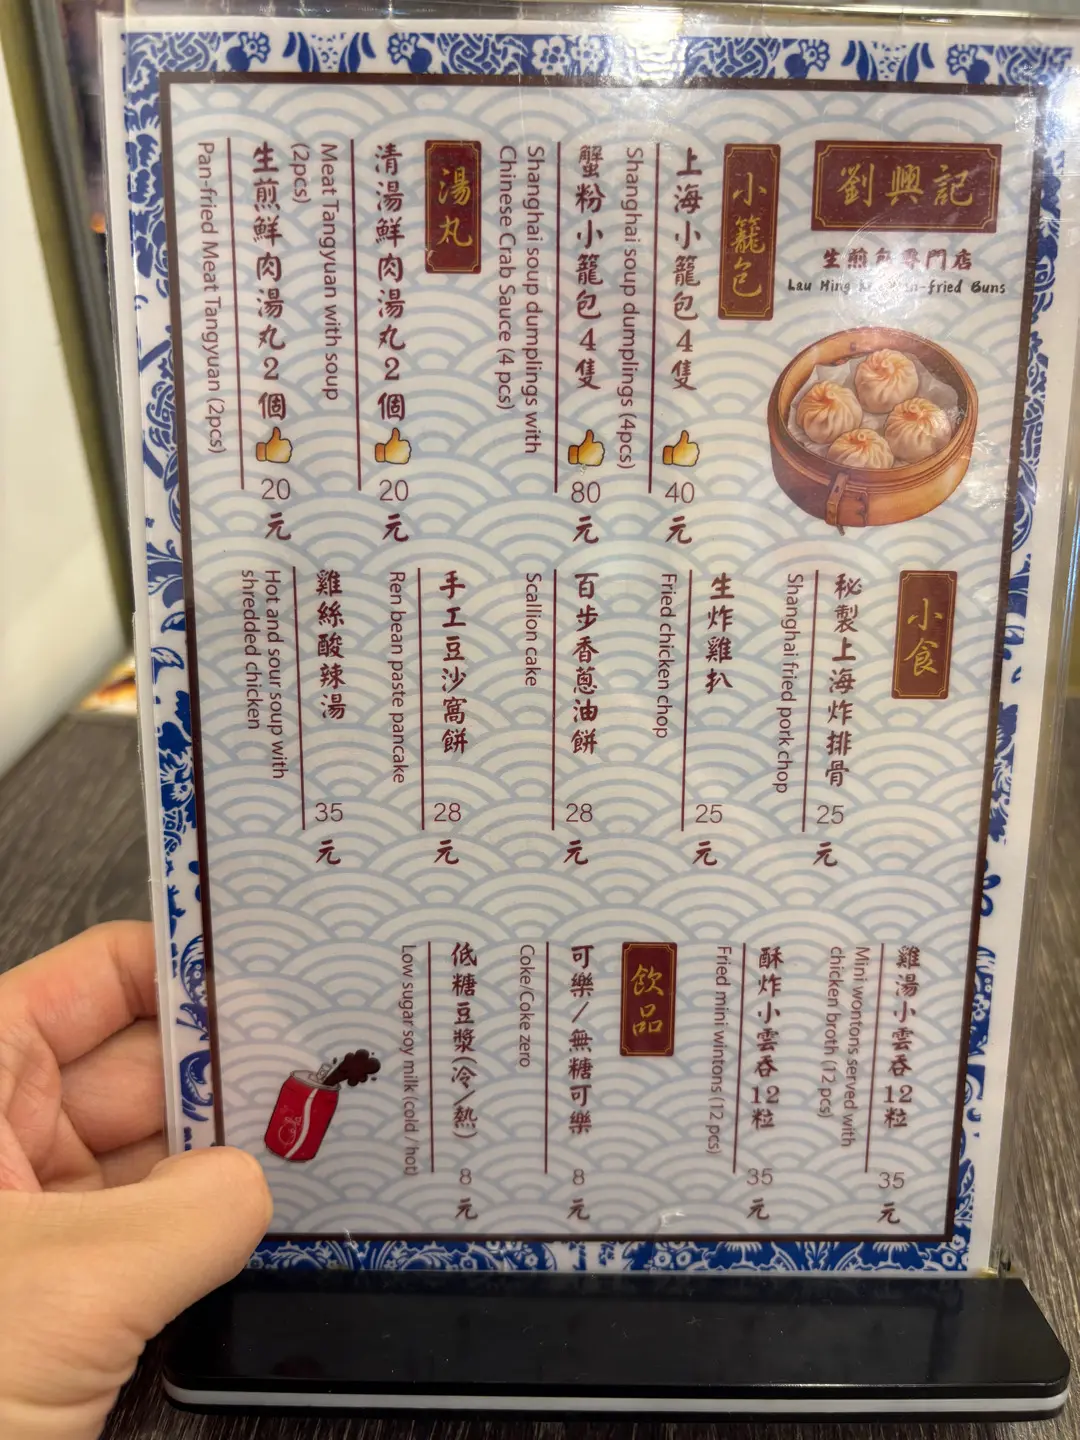 劉興記
生煎包專門店
Lau Hing Kee Pan-fried Buns
小籠包
上海小籠包4隻 40元
Shanghai soup dumplings (4pcs)
蟹粉小籠包4隻 80元
Shanghai soup dumplings with
Chinese Crab Sauce (4 pcs)
湯丸
清湯鮮肉湯丸2個 20元
Meat Tangyuan with soup
(2pcs)
生煎鮮肉湯丸2個 20元
Pan-fried Meat Tangyuan (2pcs)
小食
秘製上海炸排骨 25元
Shanghai fried pork chop
生炸雞扒 25元
Fried chicken chop
百步香蔥油餅 28元
Scallion cake
手工豆沙窩餅 28元
Ren bean paste pancake
雞絲酸辣湯 35元
Hot and sour soup with
shredded chicken
雞湯小雲吞12粒 35元
Mini wontons served with
chicken broth (12 pcs)
酥炸小雲吞12粒 35元
Fried mini wintons (12 pcs)
飲品
可樂/無糖可樂 8元
Coke/Coke zero
低糖豆漿(冷/熱) 8元
Low sugar soy milk (cold / hot)